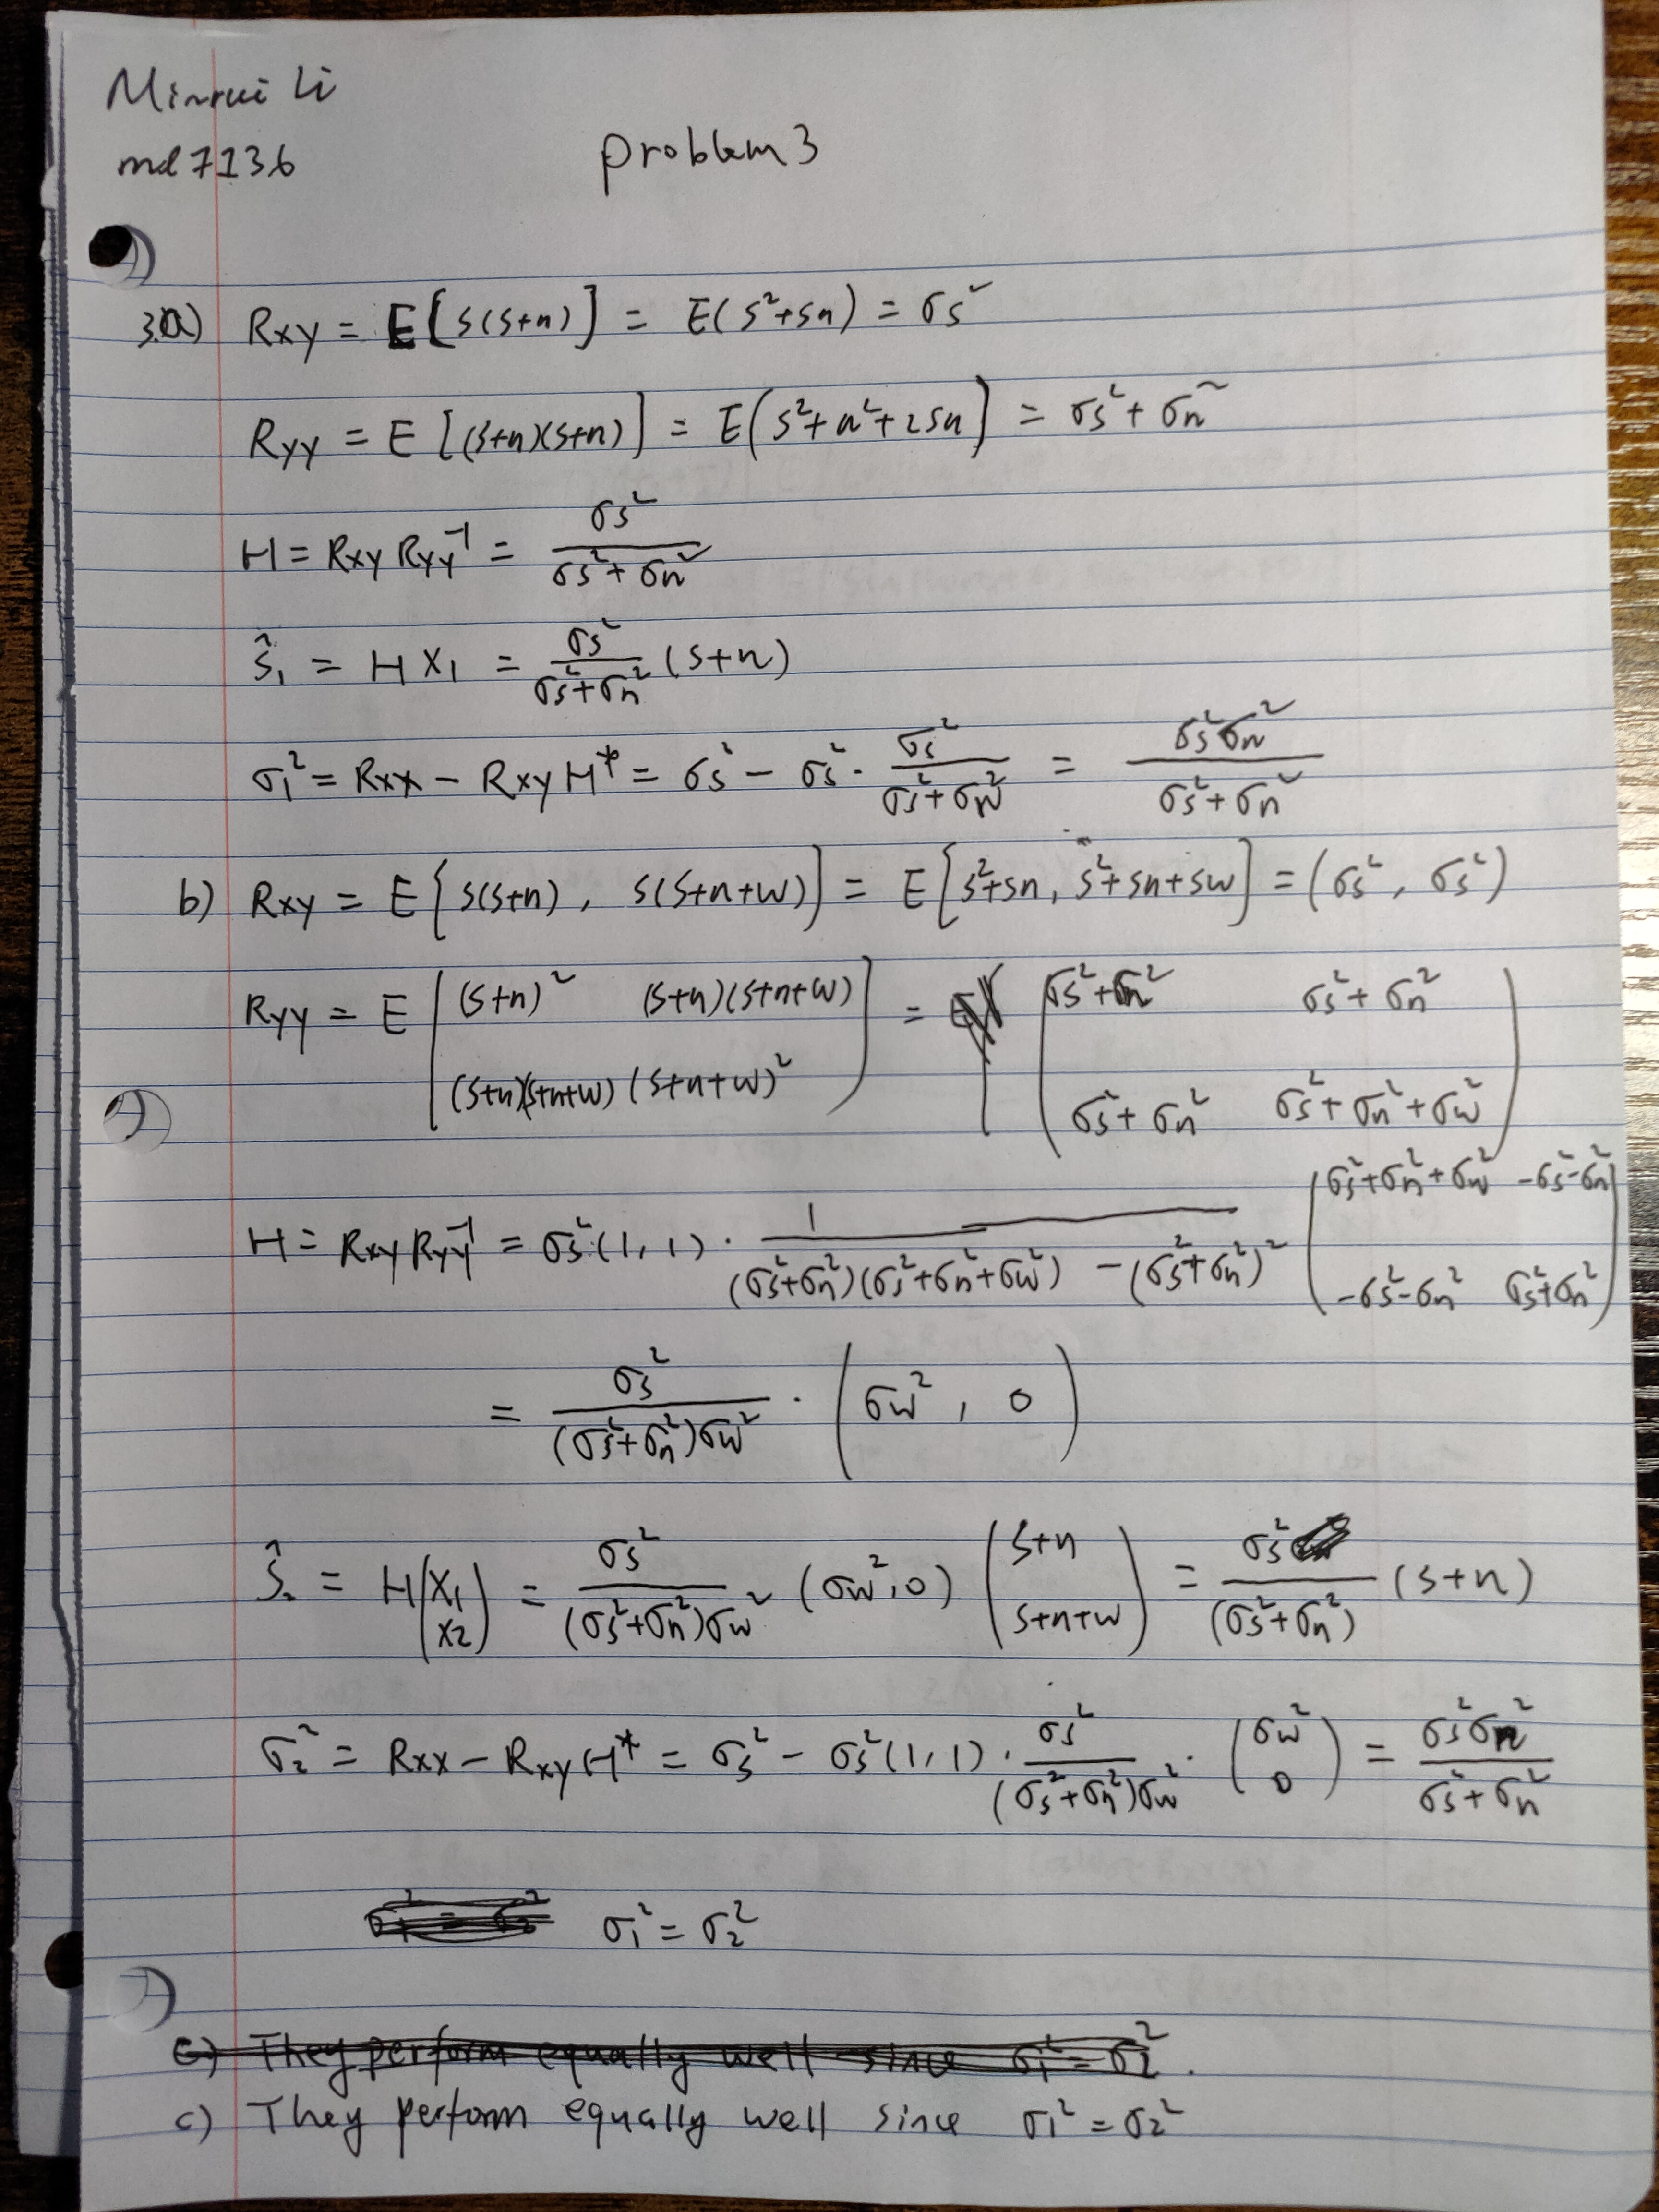 Minrui Li
ml7136
problem 3
3.a) Rxy = E[s(s+n)] = E(s²+sn) = σs²
Ryy = E[(s+n)(s+n)] = E(s²+n²+2sn] = σs² + σn²
H = Rxy Ryy⁻¹ = σs² / (σs²+σn²)
ŝ₁ = H X₁ = σs² / (σs²+σn²) (s+n)
σ₁² = Rxx − Rxy H* = σs² − σs² · σs² / (σs²+σn²) = σs²σn² / (σs²+σn²)
b) Rxy = E[s(s+n), s(s+n+w)] = E[s²+sn, s²+sn+sw] = (σs², σs²)
Ryy = E [(s+n)² (s+n)(s+n+w) = (σs²+σn² σs²+σn²
(s+n)(s+n+w) (s+n+w)²] σs²+σn² σs²+σn²+σw²)
H = Rxy Ryy⁻¹ = σs²(1,1) · 1 / ((σs²+σn²)(σs²+σn²+σw²) − (σs²+σn²)²) (σs²+σn²+σw² −σs²−σn²
−σs²−σn² σs²+σn²)
= σs² / ((σs²+σn²)σw²) · (σw², 0)
ŝ₂ = H(X₁ X₂) = σs² / ((σs²+σn²)σw²) (σw², 0) (s+n s+n+w) = σs² / (σs²+σn²) (s+n)
σ₂² = Rxx − Rxy H* = σs² − σs²(1,1) · σs² / ((σs²+σn²)σw²) · (σw² 0) = σs²σn² / (σs²+σn²)
σ₁² = σ₂²
c) They perform equally well since σ₁² = σ₂².
c) They perform equally well since σ₁² = σ₂²